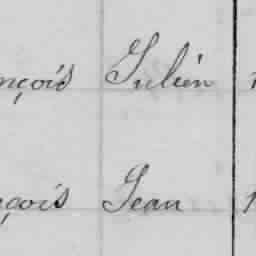 nçois Julien 1
çois Jean 1